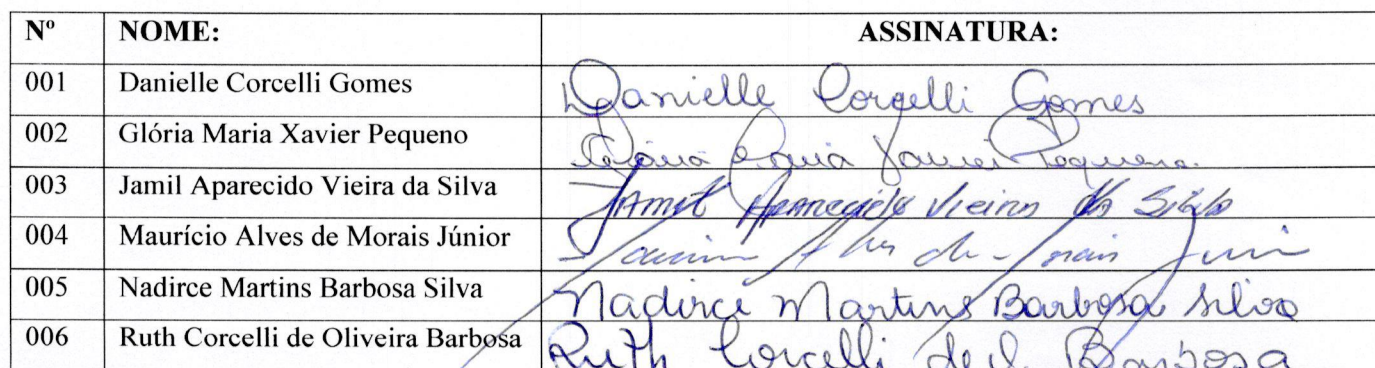 Nº NOME: ASSINATURA:
001 Danielle Corcelli Gomes Danielle Corcelli Gomes
002 Glória Maria Xavier Pequeno Glória Maria Xavier Pequeno
003 Jamil Aparecido Vieira da Silva Jamil Aparecido Vieira da Silva
004 Maurício Alves de Morais Júnior
005 Nadirce Martins Barbosa Silva Nadirce Martins Barbosa Silva
006 Ruth Corcelli de Oliveira Barbosa Ruth Corcelli de O. Barbosa